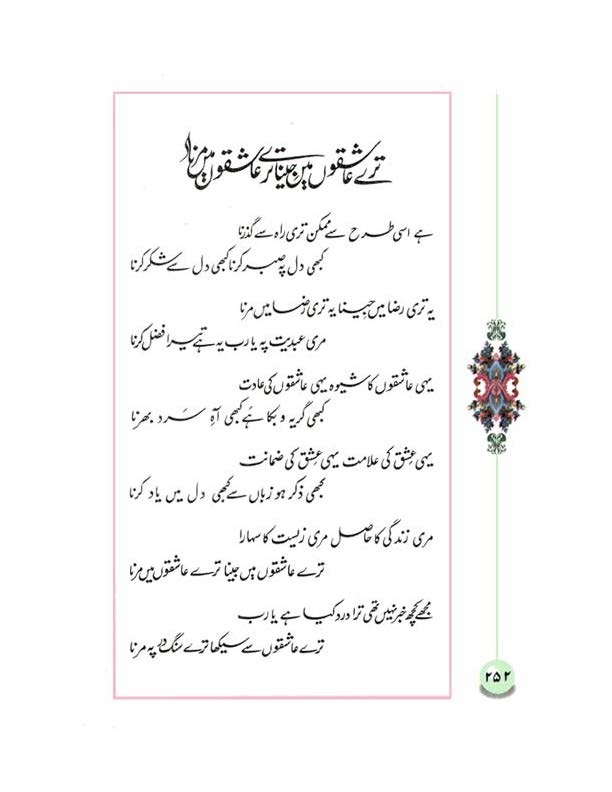 ترے عاشقوں میں جینا ترے عاشقوں میں مرنا
ہے اسی طرح سے ممکن تری راہ سے گذرنا
کبھی دل پہ صبر کرنا کبھی دل سے شکر کرنا
یہ تری رضا میں جینا یہ تری رضا میں مرنا
مری عبدیت پہ یا رب یہ ہے تیرا فضل کرنا
یہی عاشقوں کا شیوہ یہی عاشقوں کی عادت
کبھی گریہ و بکا ہے کبھی آہِ سرد بھرنا
یہی عشق کی علامت یہی عشق کی ضمانت
کبھی ذکر ہو زباں سے کبھی دل میں یاد کرنا
مری زندگی کا حاصل مری زیست کا سہارا
ترے عاشقوں میں جینا ترے عاشقوں میں مرنا
مجھے کچھ خبر نہیں تھی ترا درد کیا ہے یا رب
ترے عاشقوں سے سیکھا ترے سنگِ در پہ مرنا
۲۵۲